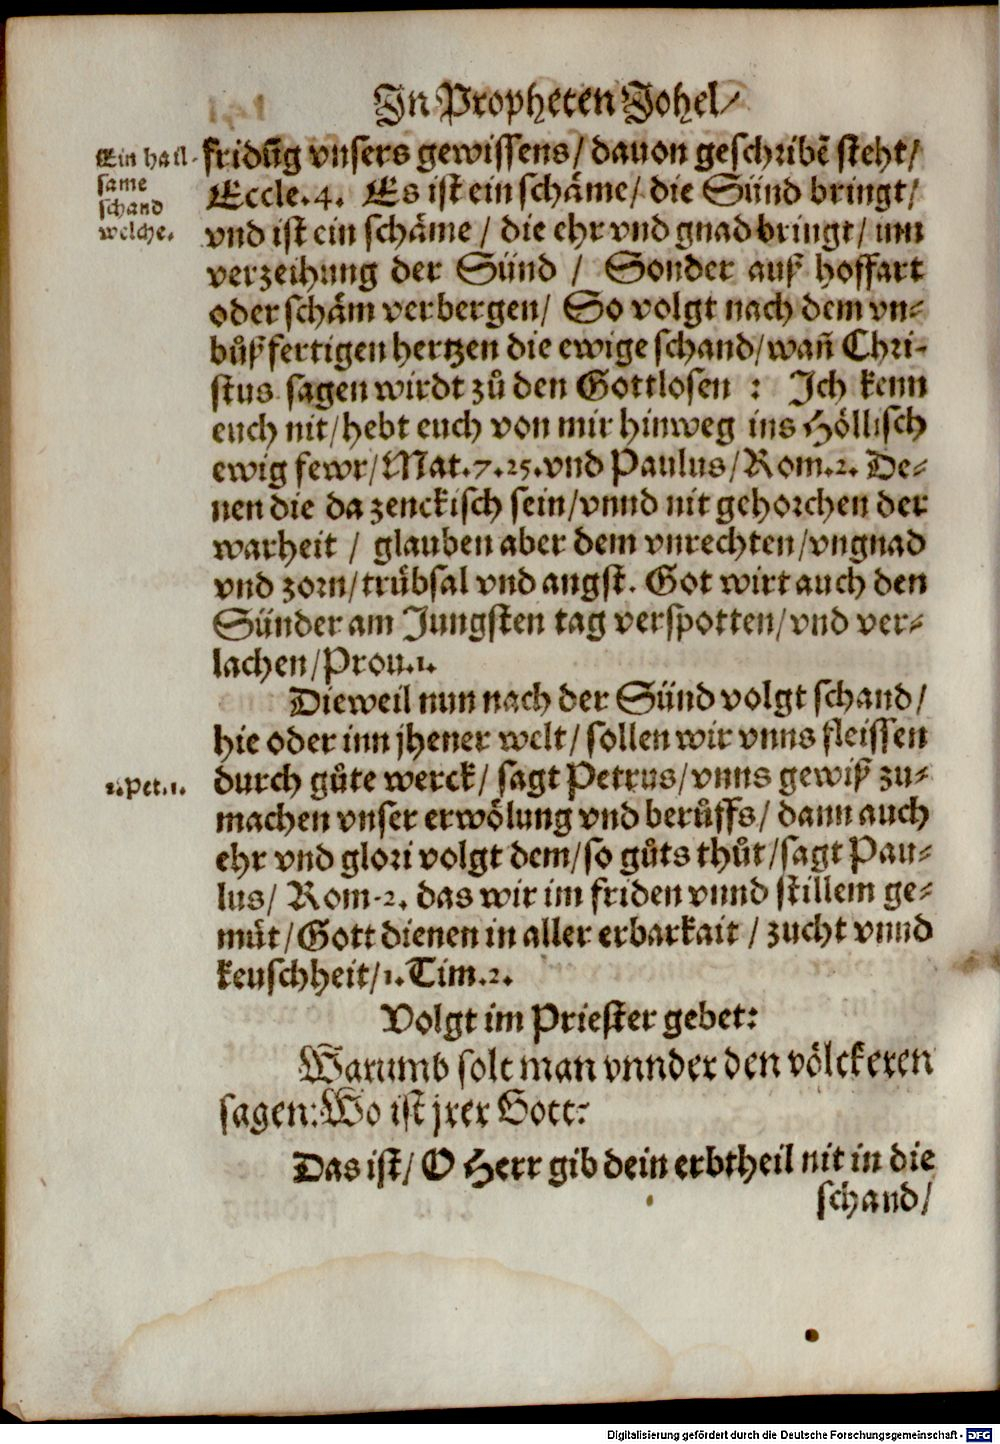 In Propheten Johel/
Ein hail-
same
schand
welche.
fridũg vnsers gewissens/ dauon geschribẽ steht/
Eccle.4. Es ist ein schäme/ die Sünd bringt/
vnd ist ein schäme / die ehr vnd gnad bringt/ inn
verzeihung der Sünd / Sonder auß hoffart
oder schäm verbergen/ So volgt nach dem vn-
bůßfertigen hertzen die ewige schand/wañ Chri-
stus sagen wirdt zů den Gottlosen : Ich kenn
euch nit/hebt euch von mir hinweg ins Höllisch
ewig fewr/Mat.7.25.vnd Paulus/Rom.2. De-
nen die da zenckisch sein/vnnd nit gehorchen der
warheit / glauben aber dem vnrechten/vngnad
vnd zorn/trübsal vnd angst. Got wirt auch den
Sünder am Jungsten tag verspotten/vnd ver-
lachen/Prou.1.
Dieweil nun nach der Sünd volgt schand/
hie oder inn jhener welt/ sollen wir vnns fleissen
1.Pet.1.
durch gůte werck/ sagt Petrus/vnns gewiß zu-
machen vnser erwölung vnd berůffs/ dann auch
ehr vnd glori volgt dem/so gůts thůt/sagt Pau-
lus/ Rom.2. das wir im friden vnnd stillem ge-
müt/Gott dienen in aller erbarkait / zucht vnnd
keuschheit/1.Tim.2.
Volgt im Priester gebet:
Warumb solt man vnnder den völckeren
sagen:Wo ist jrer Gott:
Das ist/ O Herr gib dein erbtheil nit in die
schand/
Digitalisierung gefördert durch die Deutsche Forschungsgemeinschaft - DFG